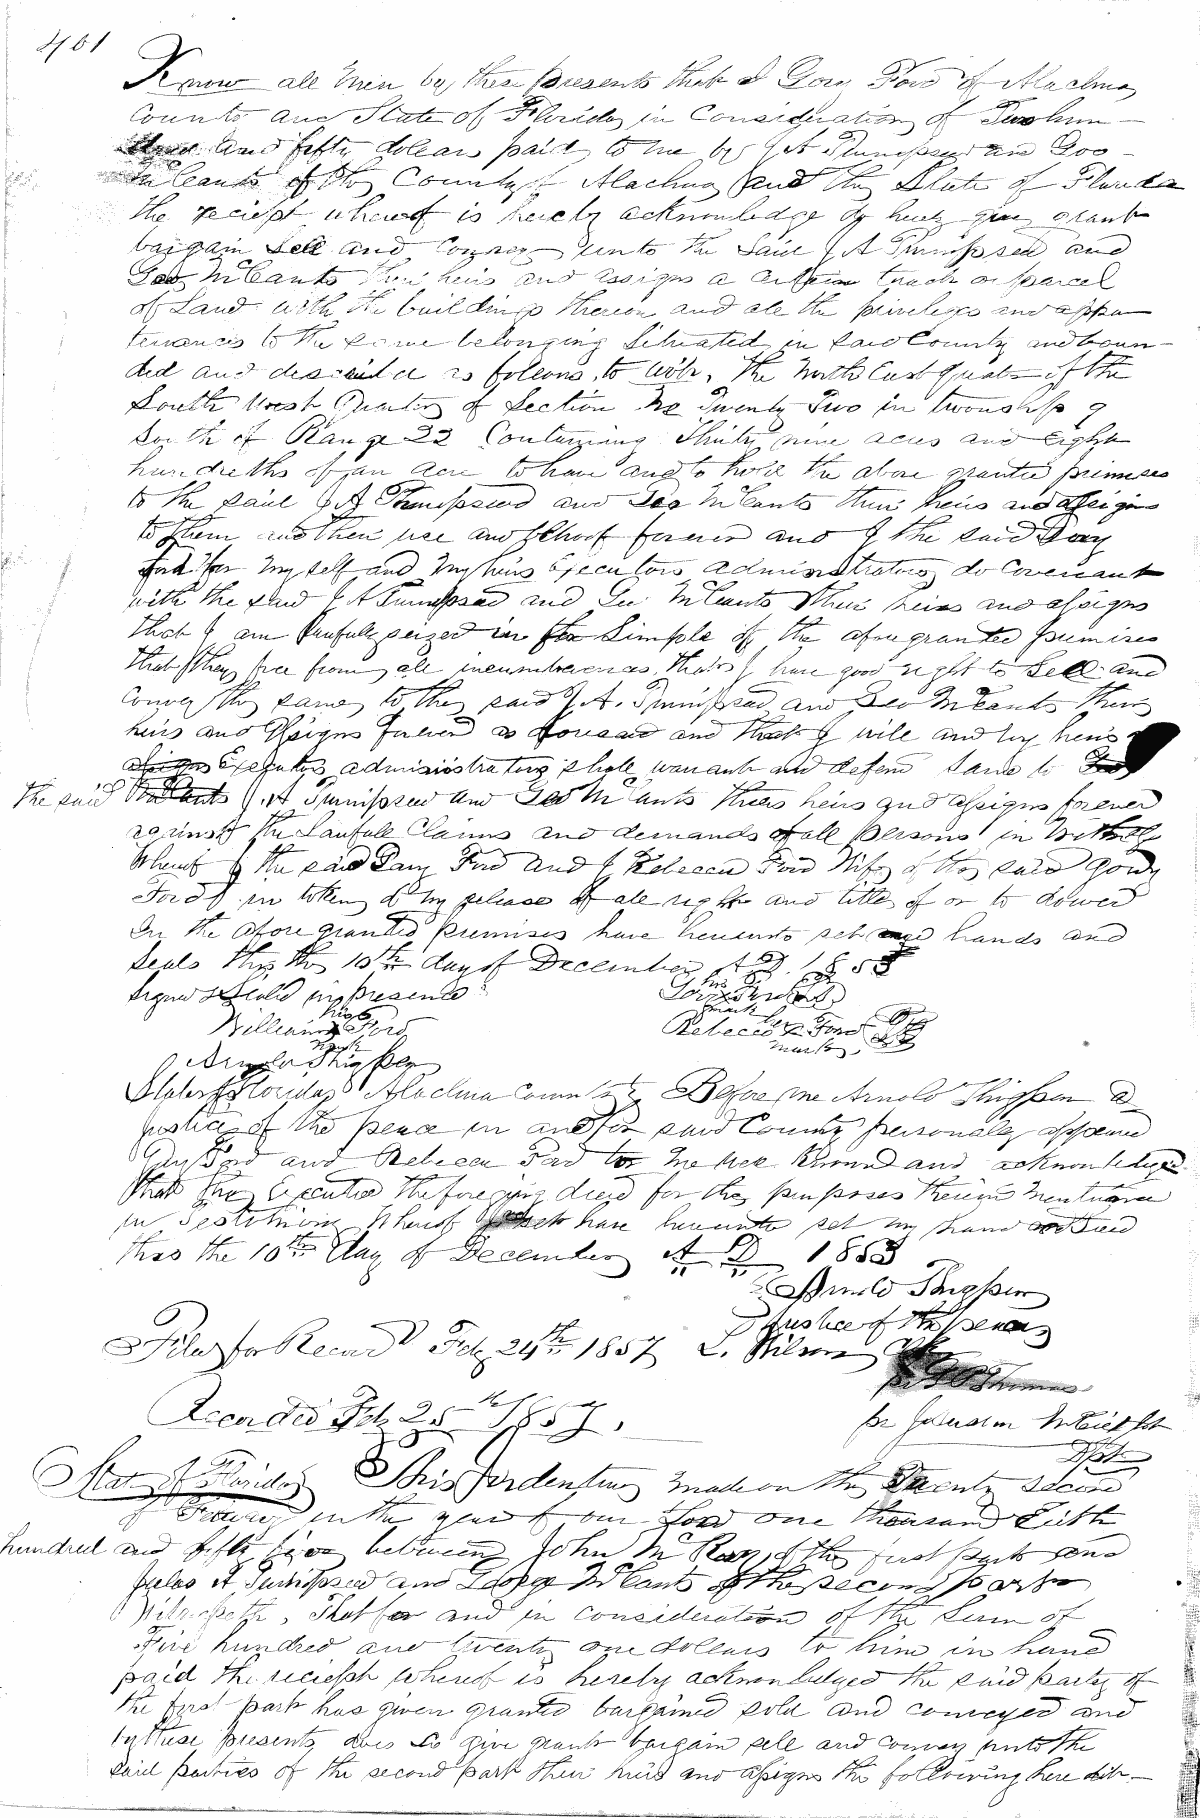 401
Know all men by these presents that I Gory Ford of Alachua
County and State of Florida in Consideration of Two hun-
dred and fifty dollars paid to me by J A Turnipseed and Geo
McCants of the County of Alachua and the State of Florida
the reciept whereof is hereby acknowledge do hereby give grant
bargain Sell and Convey unto the said J A Turnipseed and
Geo McCants their heirs and assigns a certain track or parcel
of Land with the buildings thereon and all the privileges and appu
tenances to the same belonging Situated in said County and boun-
ded and described as follows to wit, The North East Quater of the
South West Quarter of Section No Twenty Two in township 9
South of Range 22 Containing Thirty nine acres and Eight
hundreths of an acre to have and to hold the above granted premises
to the said J A Turnipseed and Geo McCants their heirs and assigns
to them and their use and behoof forever and I the said Gory
Ford for My self and My heirs Executors administrators do Covenant
with the said J A Turnipseed and Geo McCants their heirs and assigns
that I am Lawfully seized in fee Simple of the afore granted premises
that they free from all incumbrances, that I have good right to Sell and
Convey the same to the said J. A. Turnipseed and Geo McCants their
heirs and assigns forever as aforesaid and that I will and my heirs
assigns Executors administrators shall warrant and defend Same to
the said McCants J. A Turnipseed and Geo McCants theirs heirs and assigns forever
against the Lawfull Claims and demands of all persons in Witness
Whereof I the said Gory Ford and I Rebecca Ford Wife of the said Gory
Ford in token of my release of all right and title of or to dower
In the afore granted premises have hereunto set our hands and
Seals this the 10th day of December A D. 1853
Signed & Seald in presence
Gory his mark Ford
William his mark Ford
Rebecca her mark Ford
Arnold Thigpen
State of Florida Alachua County Before me Arnold Thigpen a
Justice of the peace in and for said County personally appeared
Gory Ford and Rebecca Ford to me well known and acknowledge
that they Executed the foregoing deed for the purposes therein mentioned
in Testimony Whereof have hereunto set my hand and Seal
this the 10th Day of December A D 1853
Arnold Thigpen
Justice of the peace
Filed for Record Feb 24th 1857 L. Wilson Clk
Thomas
Recorded Feb 25th 1857.
pr
Dpt
State of Florida This Indenture made on the Twenty second
of in the year of our Lord one thousand Eight
hundred and fifty five between John McRay of the first part and
Julas A Turnipseed and George McCants of the second part
Witnesseth, That for and in consideration of the Sum of
Five hundred and twenty one dollars to him in hand
paid the reciept whereof is hereby acknowledged the said party of
the first part has given granted bargained sold and conveyed and
by these presents does so give grant bargain sell and convey unto the
said parties of the second part their heirs and assigns the following here dit-